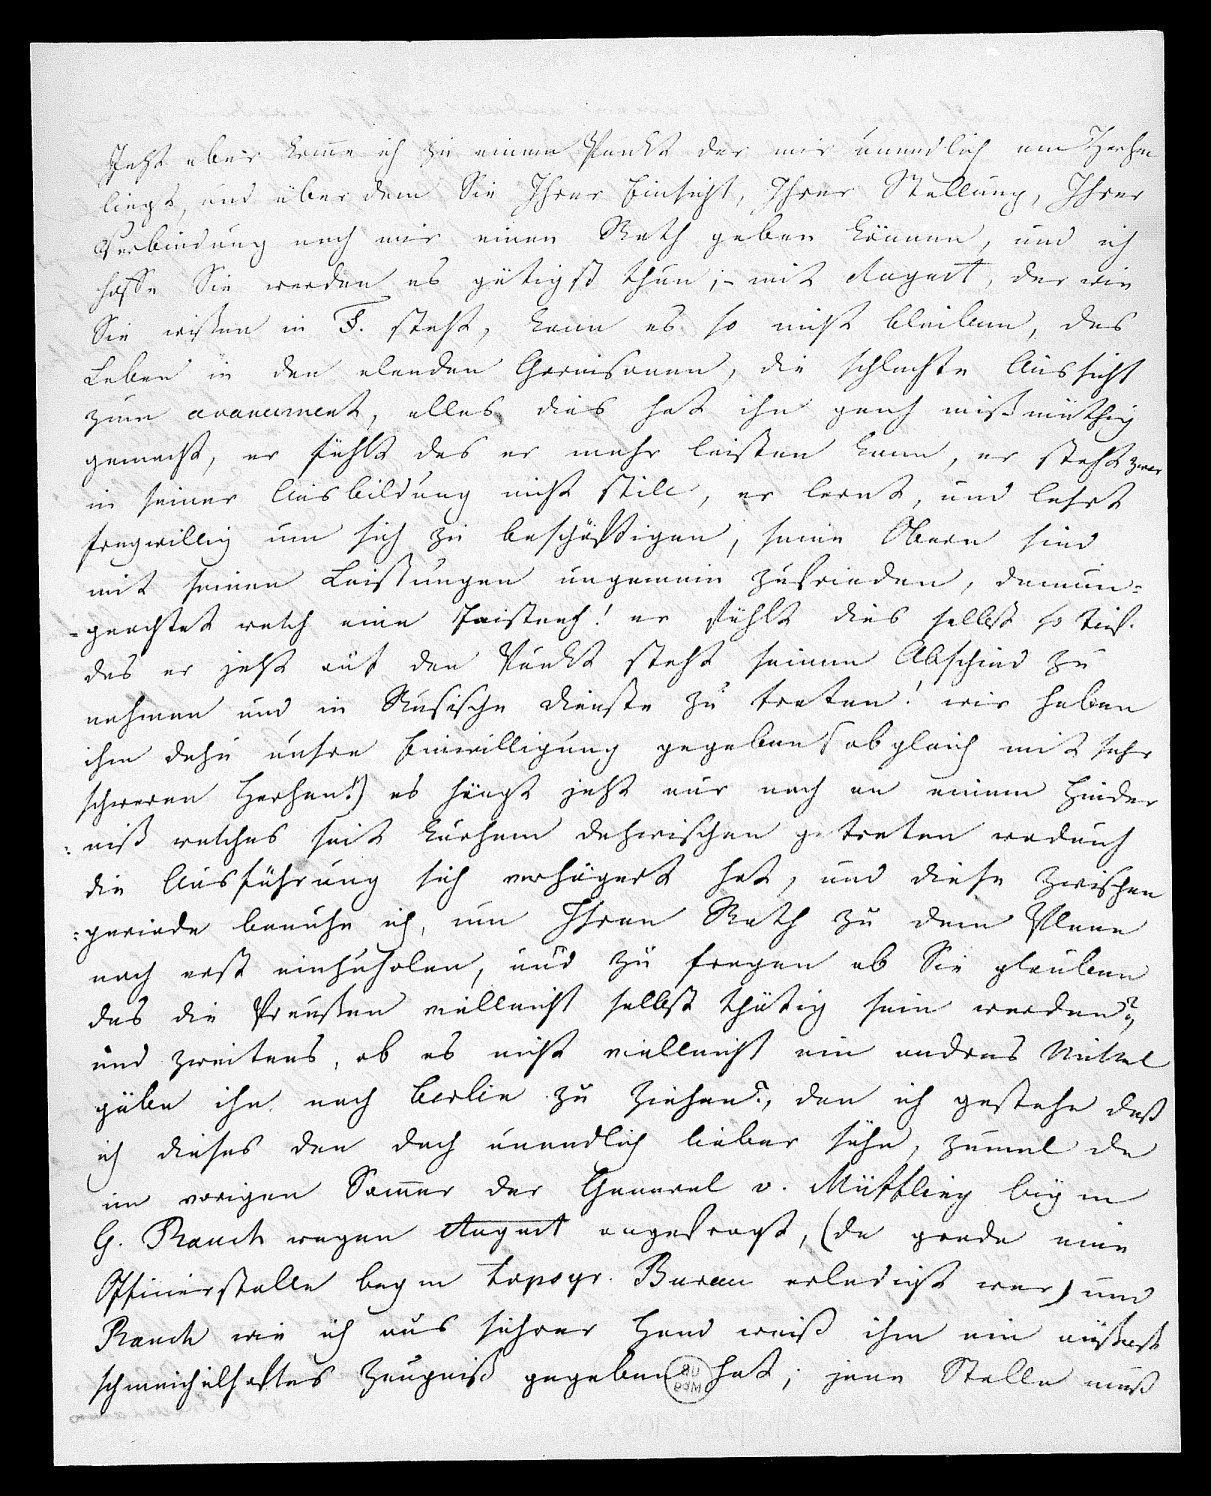 Jetzt aber komme ich zu einem Punkt der mir unendlich am Herzen
liegt, und über dem Sie Ihrer Einsicht, Ihrer Stellung, Ihrer
Verbindung nach mir einen Rath geben können, und ich
hoffe Sie werden es gütigst thun; – mit August, der wie
Sie wißen in F. steht, kann es so nicht bleiben, das
Leben in den elenden Garnisonen, die schlechte Aussicht
zum avancement, alles dies hat ihn ganz mißmüthig
gemacht, er fühlt das er mehr leisten kann, er steht zwar
in seiner Ausbildung nicht still, er lernt, und lehrt
freywillig um sich zu beschäftigen, seine Obern sind
mit seinen Leistungen ungemein zufrieden, demun-
-geachtet welch eine Existenz! er fühlt dies selbst so tief.
das er jetzt auf den Punkt steht seinen Abschied zu
nehmen und in Rusische Dienste zu treten! wir haben
ihm dazu unsre Einwilligung gegeben (obgleich mit sehr
schweren Herzen!) es hängt jetzt nur noch an einem Hinder
:niß welches seit kurzem dazwischen getreten wodurch
die Ausführung sich verzögert hat, und diese Zwischen
:periode benutze ich, um Ihren Rath zu dem Plane
noch erst einzuholen, und zu fragen ob Sie glauben
das die Preußen vielleicht selbst thätig sein werden?,
und zweitens, ob es nicht vielleicht ein andres Mittel
gäbe ihn nach Berlin zu ziehen?, den ich gestehe daß
ich dieses den doch unendlich lieber sähe, zumal da
im vorigen Sommer der General v. Müffling beym
G. Rauch wegen August angefragt, (da grade eine
Offizierstelle beym topogr. Bureau erledigt war) und
Rauch wie ich aus sichrer Hand weiß ihm ein äußerst
schmeichelhaftes Zeugniß gegeben hat; jene Stelle muß